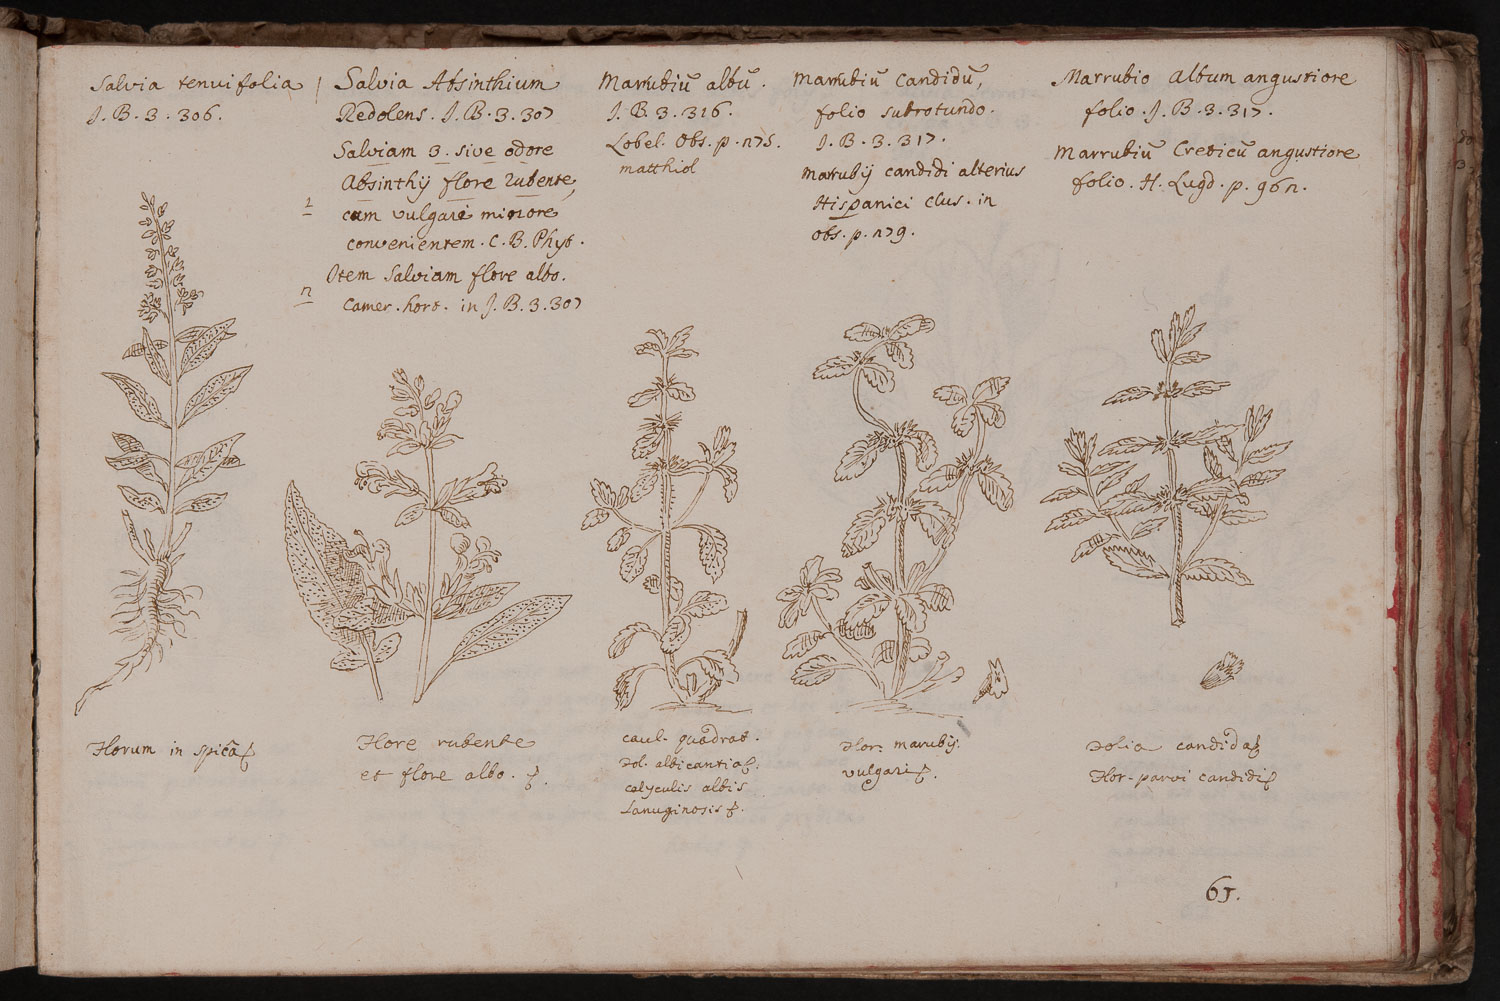 Salvia tenuifolia
J. B. 3. 306.
Salvia Absinthium
Redolens. J. B. 3. 307
Salviam 3. sive odore
Absinthij flore rubente,
1 cum vulgari minore
convenientem. C. B. Phyt.
Item Salviam flore albo.
2 Camer. hort. in J. B. 3. 307
Marrubiū albū.
J. B. 3. 316.
Lobel. Obs. p. 275.
matthiol
Marrubiū Candidū,
folio subrotundo.
J. B. 3. 317.
Marrubij candidi alterius
Hispanici Clus. in
obs. p. 279.
Marrubio Album angustiore
folio. J. B. 3. 317.
Marrubiū Creticū angustiore
folio. H. Lugd. p. 962.
Florum in spicā
Flore rubente
et flore albo.
caul. quadrat.
Fol. albicantia
calyculis albis
Lanuginosis
Flor. marubij
vulgari
Folia candida
Flor. parvi candidi
61.